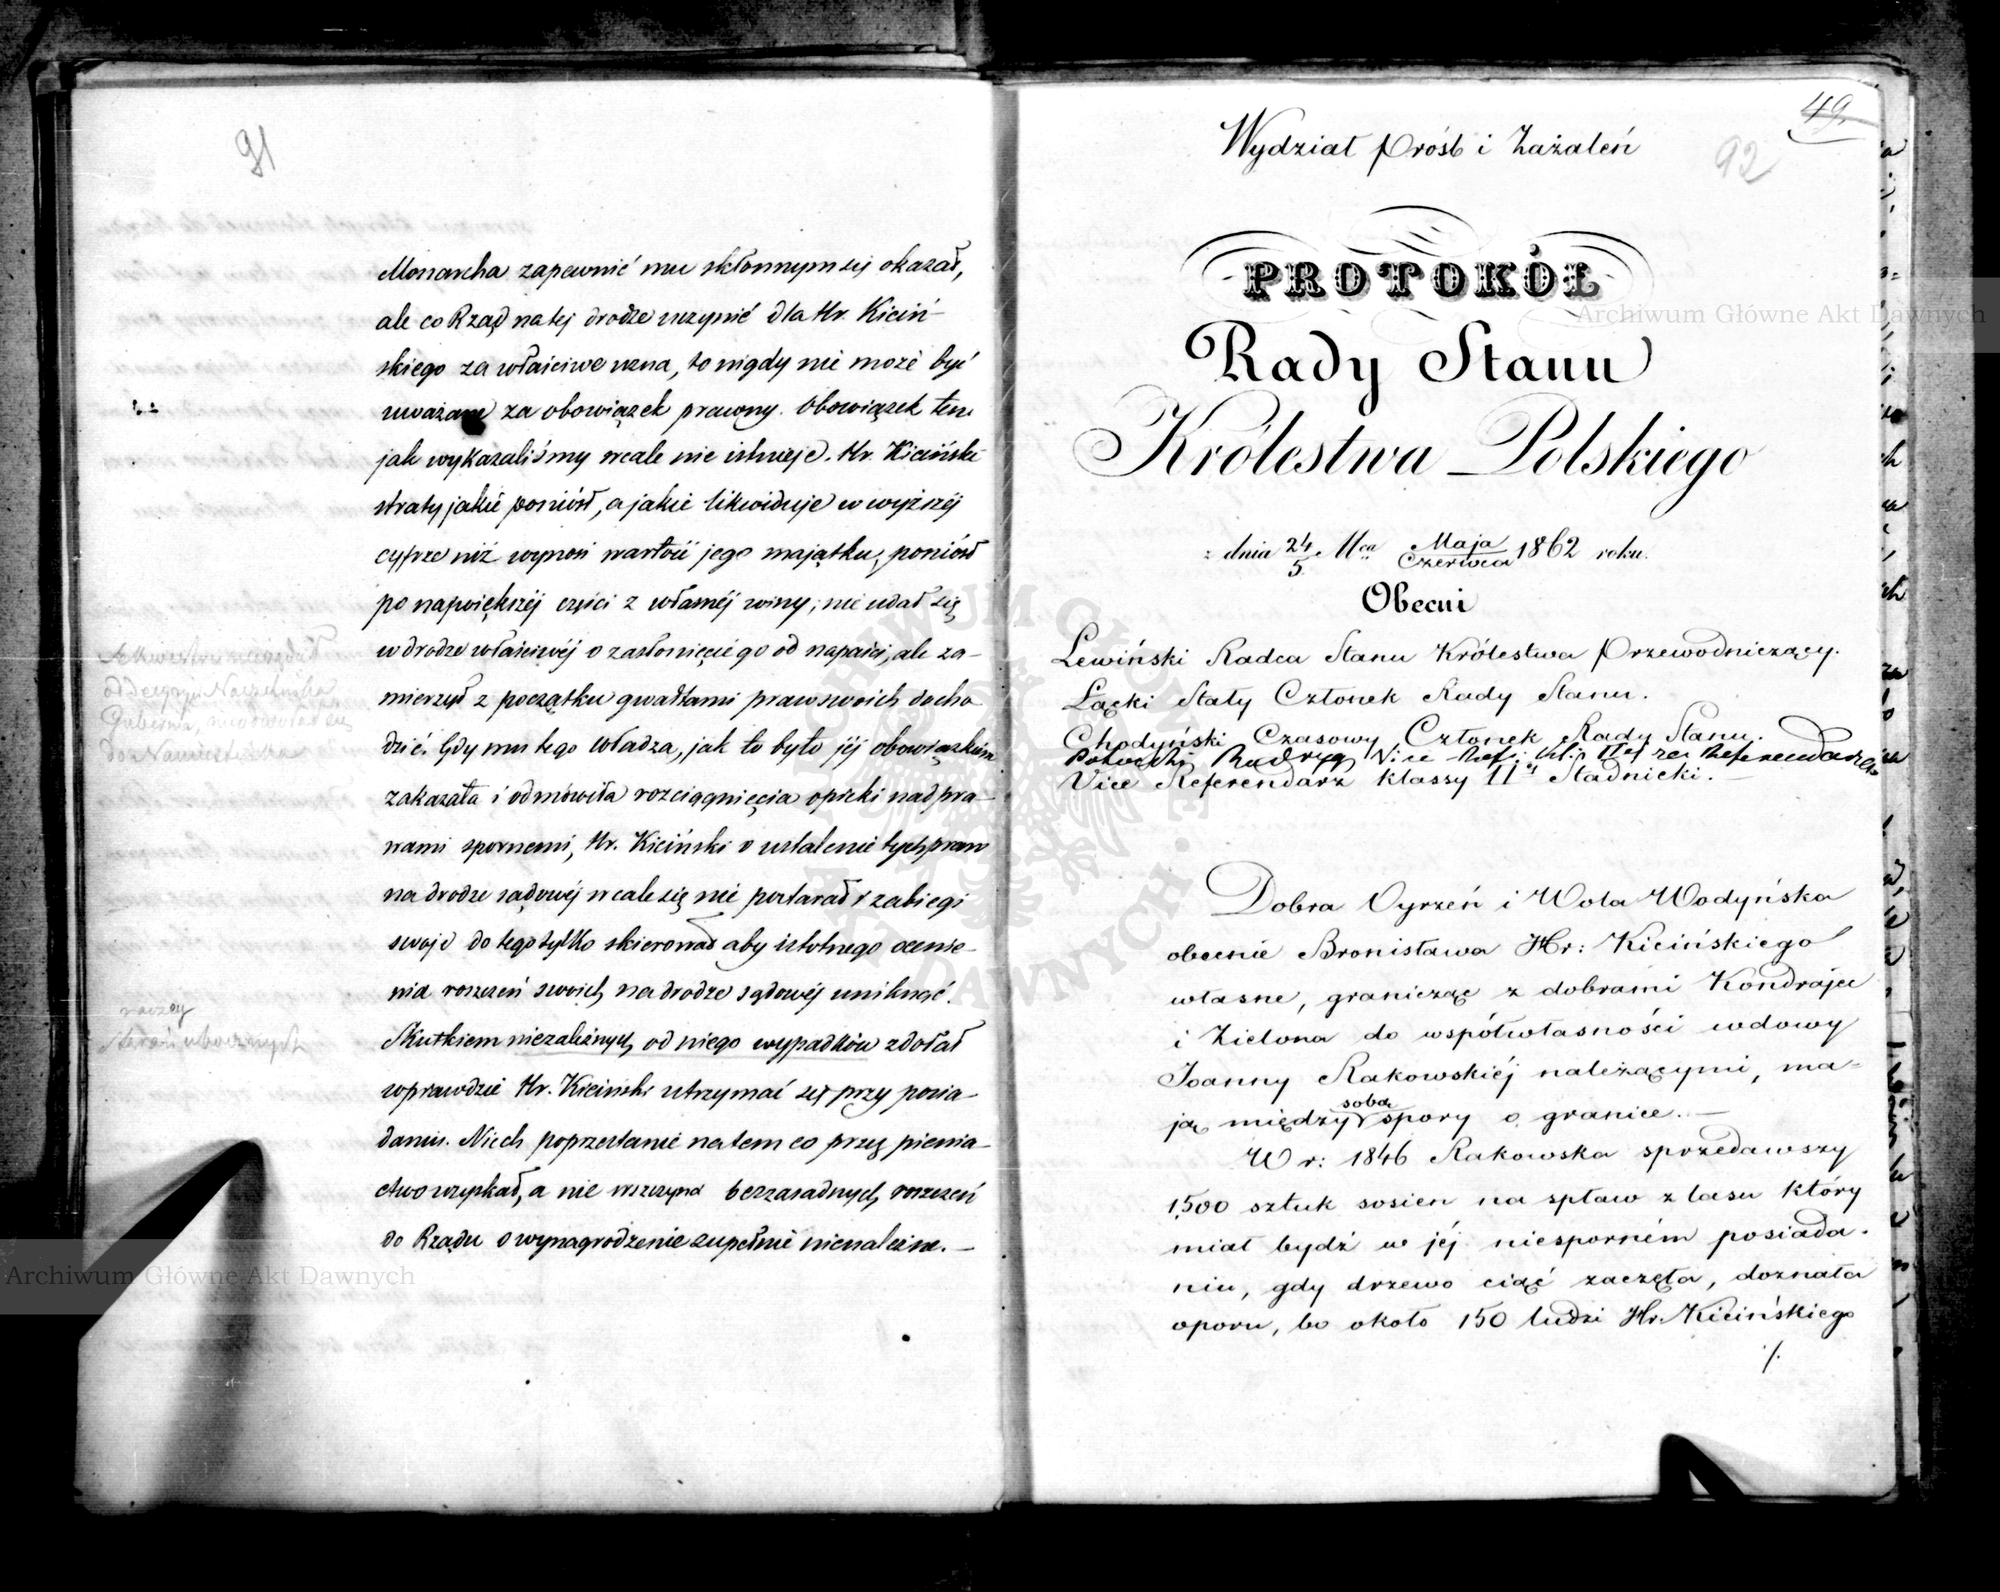 91
Monarcha zapewnić mu skłonnym się okazał,
ale co Rząd na tej drodze uczynić dla Hr. Kiciń-
skiego za właściwe uzna, to nigdy nie może być
uważane za obowiązek prawny. Obowiązek ten
jak wykazaliśmy wcale nie istnieje. Hr. Kiciński
straty jakie poniósł, a jakie likwiduje w wyższéj
cyfrze niż wynosi wartość jego majątku, poniósł
po największéj części z własnéj winy; nie udał się
w drodze właściwéj o zasłonięcie go od napaści, ale za-
mierzył z początku gwałtami praw swoich docho
dzić. Gdy mu tego władza, jak to było jéj obowiązkiem
zakazała i odmówiła rozciągnięcia opieki nad pra-
wami spornemi, Hr. Kiciński o ustalenie tych praw
na drodze sądowéj wcale się nie postarał i zabiegi
swoje do tego tylko skierował aby istotnego ocenie-
nia roszczeń swoich na drodze sądowéj uniknąć.
Skutkiem niezależnych od niego wypadków zdołał
wprawdzie Hr. Kiciński utrzymać się przy posia-
daniu. Niech poprzestanie na tem co przez pienia-
ctwo uzyskał, a nie wszczyna bezzasadnych roszczeń
do Rządu o wynagrodzenie zupełnie nienależne. —
Naczelnika
Gubernii,
do Namiestnika
raczej
ubocznych
49.
92
Wydział Próśb i Zażaleń
PROTOKÓŁ
Rady Stanu
Królestwa Polskiego
z dnia 24/5 Mca Maja/Czerwca 1862 roku.
Obecni
Lewiński Radca Stanu Królestwa Przewodniczący.
Łącki Stały Członek Rady Stanu.
Chodyński Czasowy Członek Rady Stanu.
Vice Ref: Kl: IIej za Referendarza
Vice Referendarz klassy IIej Stadnicki. —
Dobra Oyrzeń i Wola Wodyńska
obecnie Bronisława Hr: Kicińskiego
własne, granicząc z dobrami Kondrajec
i Zielona do współwłasności wdowy
Joanny Rakowskiéj należącymi, ma-
ją między sobą spory o granice. —
W r: 1846 Rakowska sprzedawszy
1,500 sztuk sosien na spław z lasu który
miał bydź w jéj niesporném posiada-
niu, gdy drzewo ciąć zaczęła, doznała
oporu, bo około 150 ludzi Hr. Kicińskiego
./.
Archiwum Główne Akt Dawnych
Archiwum Główne Akt Dawnych
ARCHIWUM GŁÓWNE AKT DAWNYCH